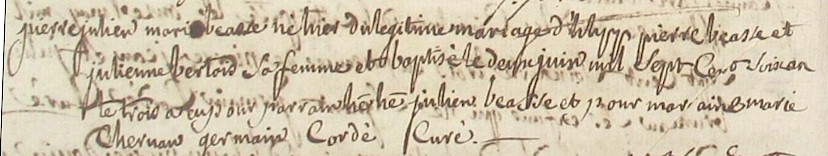 pierre julien marie beasse né hier du légitime mariage d' pierre beasse et
julienne bertois sa femme et baptisé le deux juin mil sept cens soixan
te trois a eu pour parrain julien beasse et pour maraine marie
germain Cordé Curé.